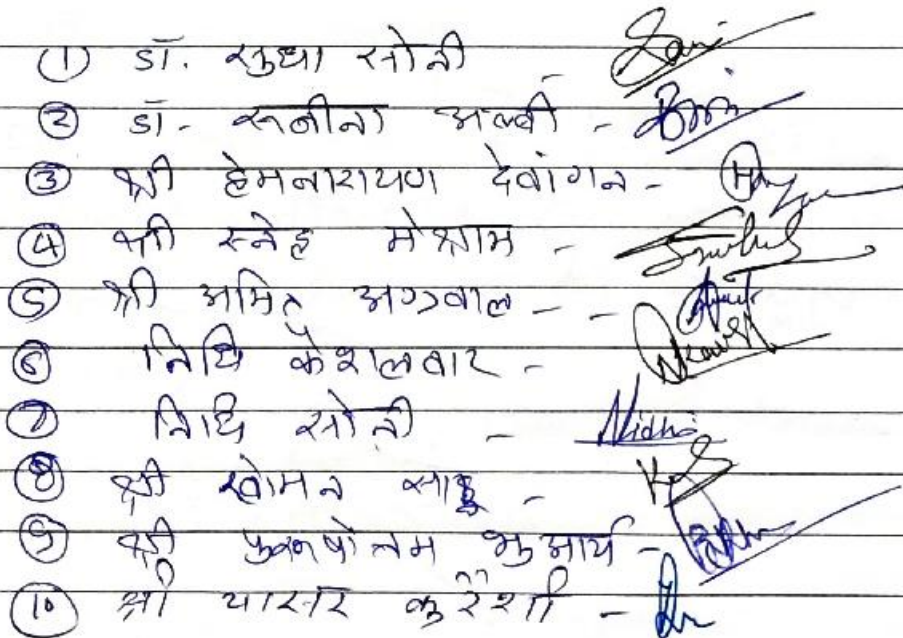 ① डॉ. सुधा सोनी -
② डॉ. सुनीता अल्वी -
③ श्री हेमनारायण देवांगन -
④ श्री स्नेह मेश्राम -
⑤ श्री अमित अग्रवाल - -
⑥ निधि कौशलवार -
⑦ निधि सोनी - Nidhi
⑧ श्री खोमन साहू -
⑨ श्री पुरूषोत्तम भुआर्य -
⑩ श्री यासर कुरैशी -